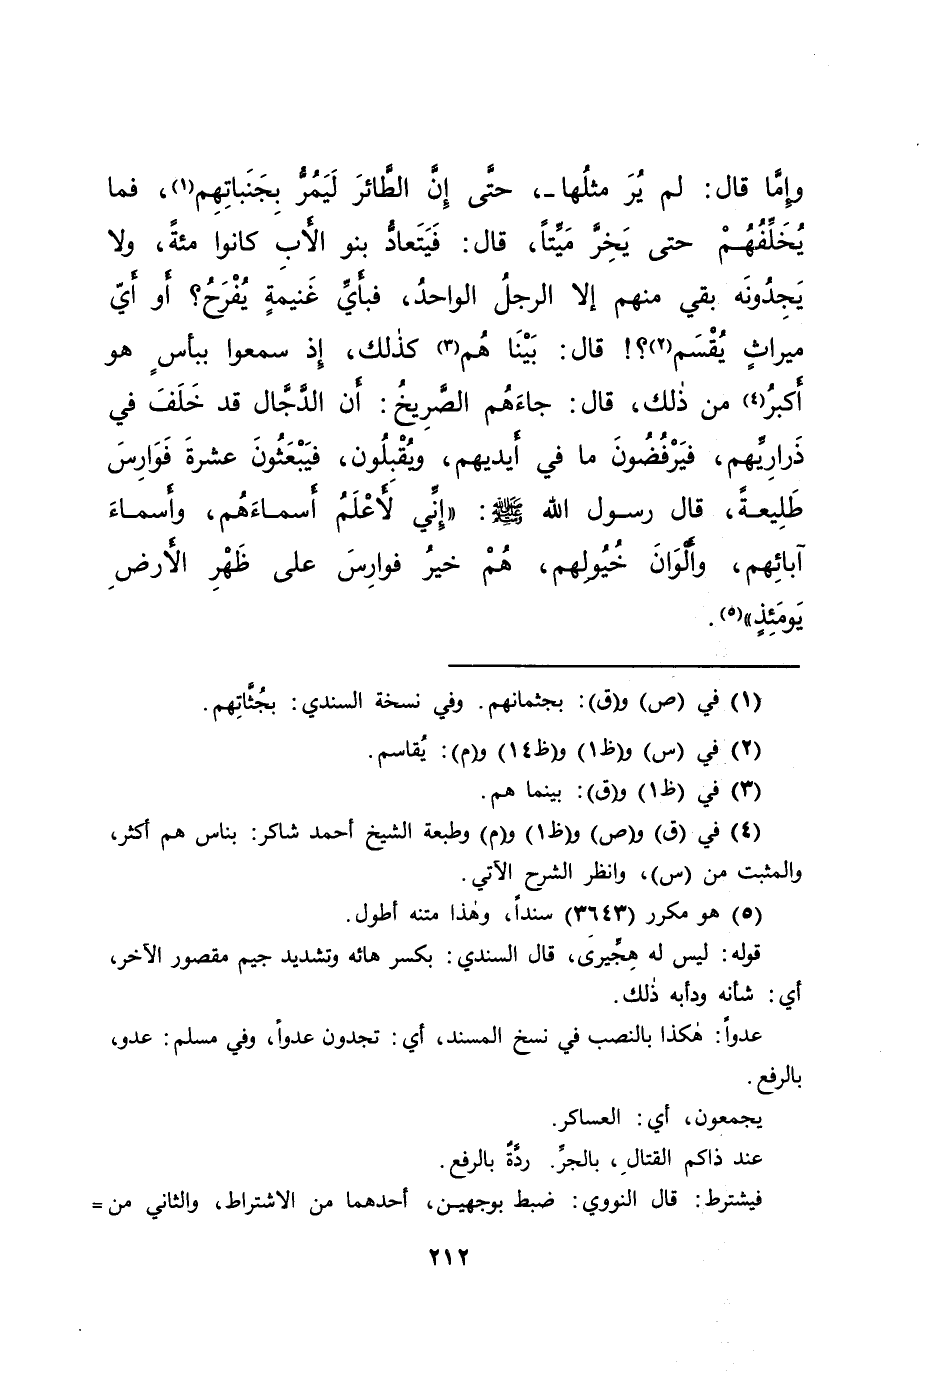 وإِمَّا قال: لم يُرَ مثلُها ـ، حتَّى إِنَّ الطَّائرَ لَيَمُرُّ بِجَنَباتِهِم(١)، فما
يُخَلِّفُهُمْ حتى يَخِرَّ مَيِّتاً، قال: فَيَتَعادُّ بنو الأَبِ كانوا مئةً، ولا
يَجِدُونَه بقي منهم إلا الرجلُ الواحدُ، فبأَيِّ غَنيمةٍ يُفْرَحُ؟ أَو أَيّ
ميراثٍ يُقْسَم(٢)؟! قال: بَيْنَا هُم(٣) كذٰلك، إِذ سمعوا ببأسٍ هو
أَكبرُ(٤) من ذٰلك، قال: جاءَهُم الصَّرِيخُ: أَن الدَّجَّال قد خَلَفَ في
ذَرارِيِّهم، فَيَرْفُضُونَ ما في أَيديهم، ويُقْبِلُون، فيَبْعَثُونَ عشرةَ فَوَارِسَ
طَلِيعةً، قال رسول الله ﷺ: «إِنِّي لَأَعْلَمُ أَسماءَهُم، وأَسماءَ
آبائِهم، وأَلْوَانَ خُيُولِهم، هُمْ خيرُ فوارِسَ على ظَهْرِ الأَرضِ
يَومَئِذٍ»(٥).
(١) في (ص) و(ق): بجثمانهم. وفي نسخة السندي: بجُثَّاتِهم.
(٢) في (س) و(ظ١) و(ظ١٤) و(م): يُقاسم.
(٣) في (ظ١) و(ق): بينما هم.
(٤) في (ق) و(ص) و(ظ١) و(م) وطبعة الشيخ أحمد شاكر: بناس هم أكثر،
والمثبت من (س)، وانظر الشرح الآتي.
(٥) هو مكرر (٣٦٤٣) سنداً، وهٰذا متنه أطول.
قوله: ليس له هِجِّيرَى، قال السندي: بكسر هائه وتشديد جيم مقصور الآخر،
أي: شأنه ودأبه ذٰلك.
عدواً: هٰكذا بالنصب في نسخ المسند، أي: تجدون عدواً، وفي مسلم: عدو،
بالرفع.
يجمعون، أي: العساكر.
عند ذاكم القتالِ، بالجرِّ. ردَّةٌ بالرفع.
فيشترط: قال النووي: ضبط بوجهين، أحدهما من الاشتراط، والثاني من=
٢١٢